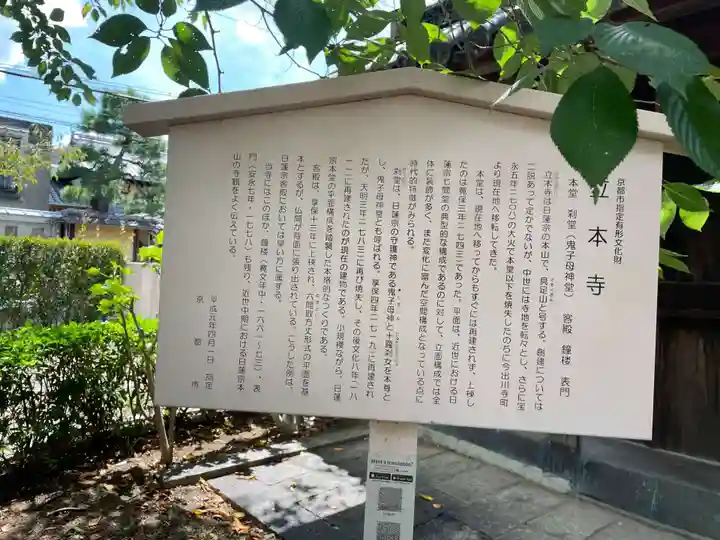 京都市指定有形文化財
立本寺
本堂 刹堂(鬼子母神堂) 客殿 鐘楼 表門
立本寺は日蓮宗の本山で、具足山と号する。創建については
二説あって定かでないが、中世には寺地を転々とし、さらに宝
永五年(一七〇八)の大火で本堂以下を焼失したのちに今出川寺町
より現在地へ移転してきた。
本堂は、現在地へ移ってからもすぐには再建されず、上棟し
たのは寛保三年(一七四三)であった。平面は、近世における日
蓮宗七間堂の典型的な構成であるのに対して、立面構成では全
体に装飾が多く、また変化に富んだ空間構成となっている点に
時代的特徴がみられる。
刹堂は、日蓮宗の守護神である鬼子母神と十羅刹女を本尊と
し、鬼子母神堂とも呼ばれる。享保四年(一七一九)に再建され
たが、天明三年(一七八三)に再び焼失し、その後文化八年(一八
一一)に再建されたのが現在の建物である。小規模ながら、日蓮
宗本堂の平面構成を踏襲した本格的なつくりである。
客殿は、享保十三年に上棟され、六間取方丈形式の平面を基
本とするが、仏間が背面に張り出されている。こうした例は、
日蓮宗客殿においては早い方に属する。
当寺にはこのほか、鐘楼(寛文年中・一六六一〜七三)、表
門(安永七年・一七七八)も残り、近世中期における日蓮宗本
山の寺観をよく伝えている。
平成五年四月一日 指定
京都市